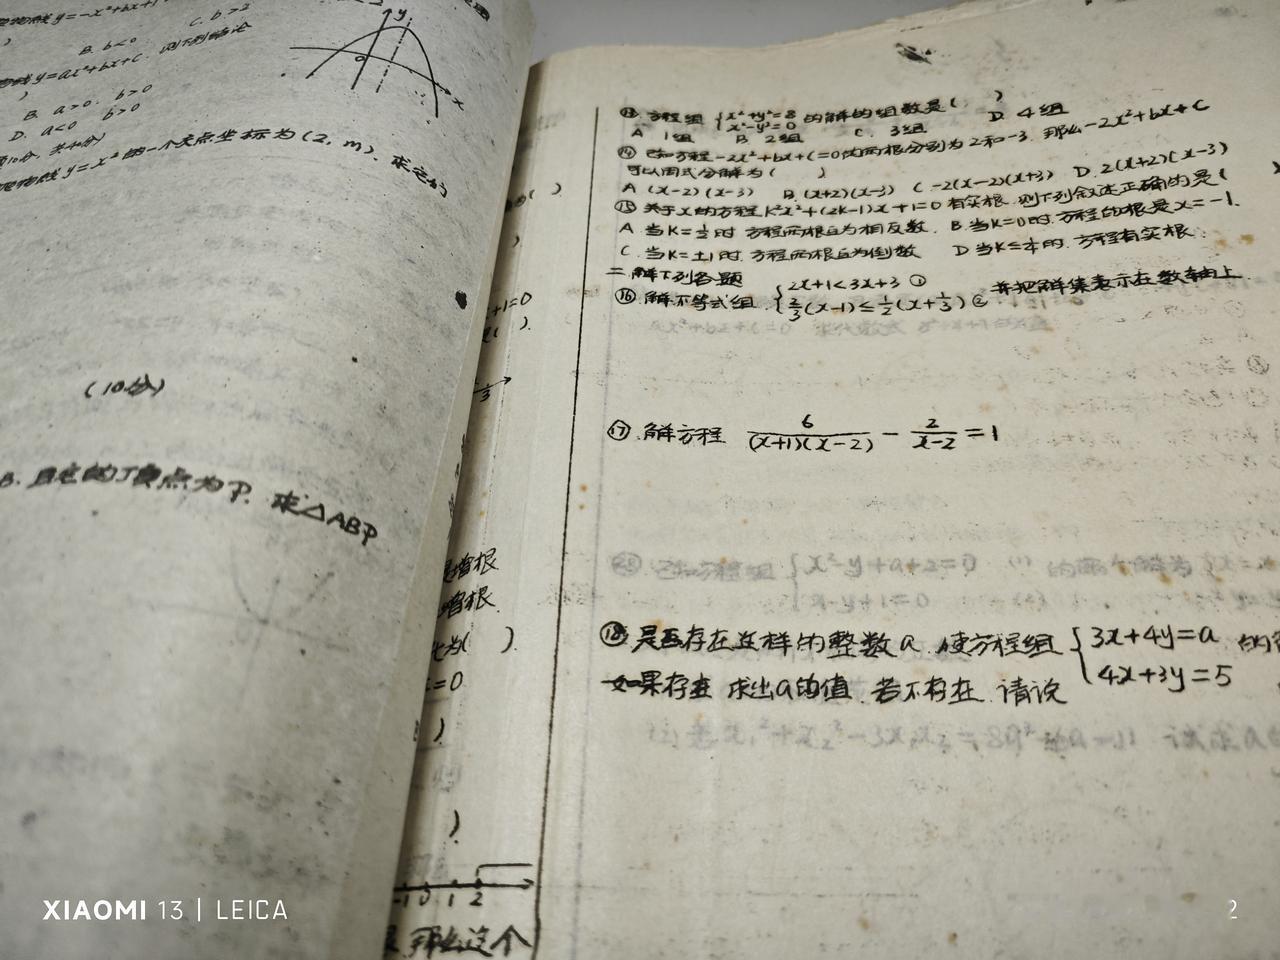 抛物线y=-x²+bx+1
B. b<0 C. b>2
y=ax²+bx+c. 则下列结论
B. a>0. b>0
D. a<0 b>0
y
o
x
y=x²的一个交点坐标为(2, m). 求
(10分)
B. 且它的顶点为P. 求△ABP
( )
+1=0
( ).
1/3
增根
增根
为( ).
=0
)
)
-1 0 1 2
那么这个
⑬. 方程组 {x²+y²=8 x²-y²=0 的解的组数是( )
A 1组 B 2组 C. 3组 D. 4组
⑭ 已知方程-2x²+bx+c=0的两根分别为2和-3. 那么-2x²+bx+c
可以因式分解为( )
A (x-2)(x-3) B. (x+2)(x-3) C -2(x-2)(x+3) D. 2(x+2)(x-3)
⑮ 关于x的方程k²x²+(2k-1)x+1=0有实根. 则下列叙述正确的是( )
A 当K=1/2时 方程两根互为相反数. B. 当K=0时. 方程的根是x=-1.
C. 当K=±1时. 方程两根互为倒数 D 当K≤1/4时. 方程有实根
二 解下列各题
⑯. 解不等式组. {2x+1<3x+3 ① 2/3(x-1)≤1/2(x+1/3) ② 并把解集表示在数轴上
⑰. 解方程 6/((x+1)(x-2)) - 2/(x-2) =1
⑱ 是否存在这样的整数a. 使方程组 {3x+4y=a 4x+3y=5 的
如果存在 求出a的值. 若不存在. 请说
XIAOMI 13 | LEICA
2